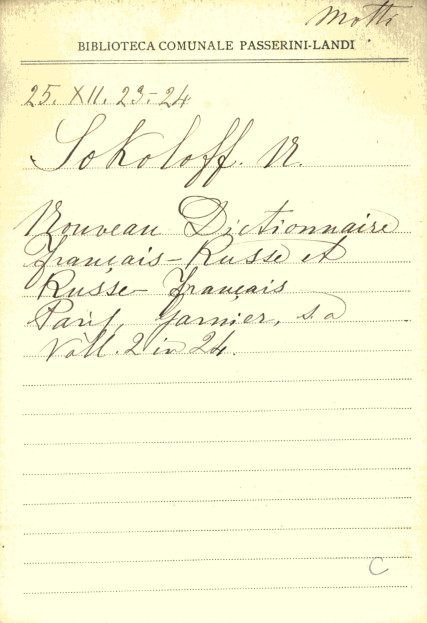 Motti
BIBLIOTECA COMUNALE PASSERINI-LANDI
25. XII. 23-24
Sokoloff. N.
Nouveau Dictionnaire
français-Russe et
Russe-français
Paris, Garnier, s. a
Voll. 2 in 24.
C